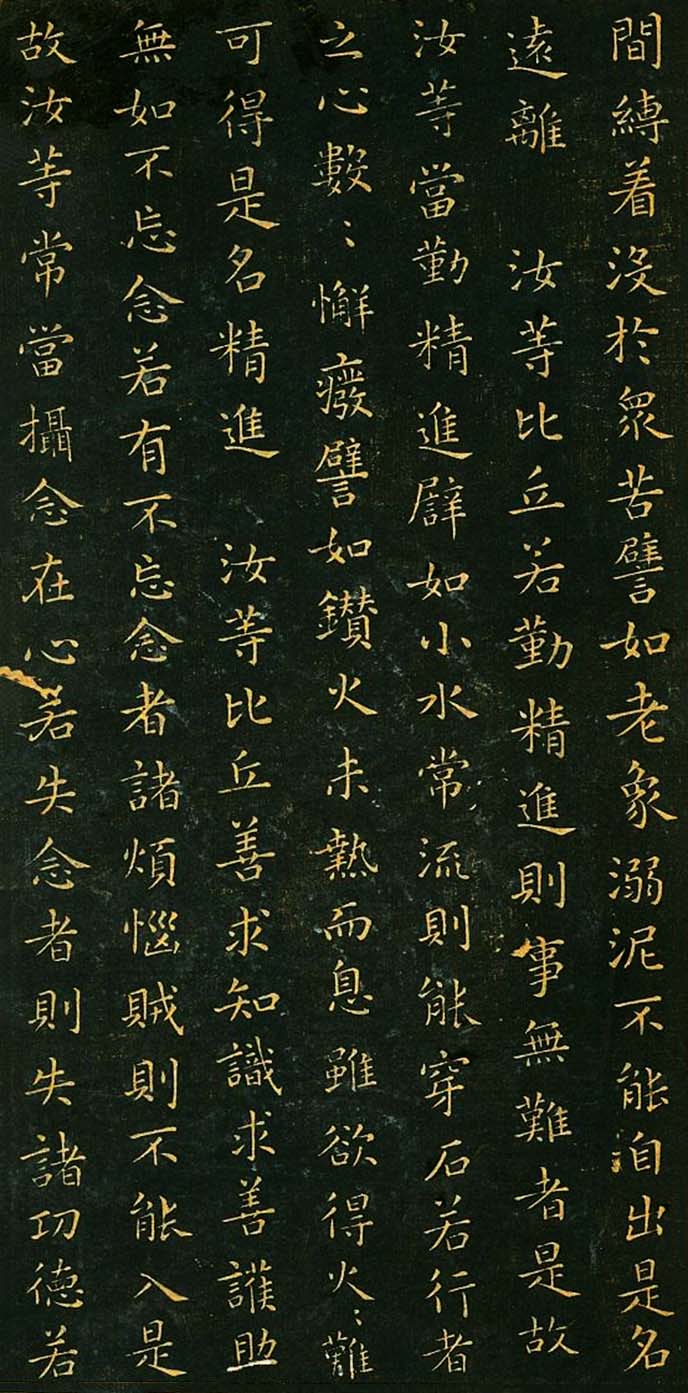 間縛着没於衆苦譬如老象溺泥不能自出是名
遠離　汝等比丘若勤精進則事無難者是故
汝等當勤精進譬如小水常流則能穿石若行者
之心數〻懈癈譬如鑚火未熱而息雖欲得火〻難
可得是名精進　汝等比丘善求知識求善護助
無如不忘念若有不忘念者諸煩惱賊則不能入是
故汝等常當攝念在心若失念者則失諸功德若